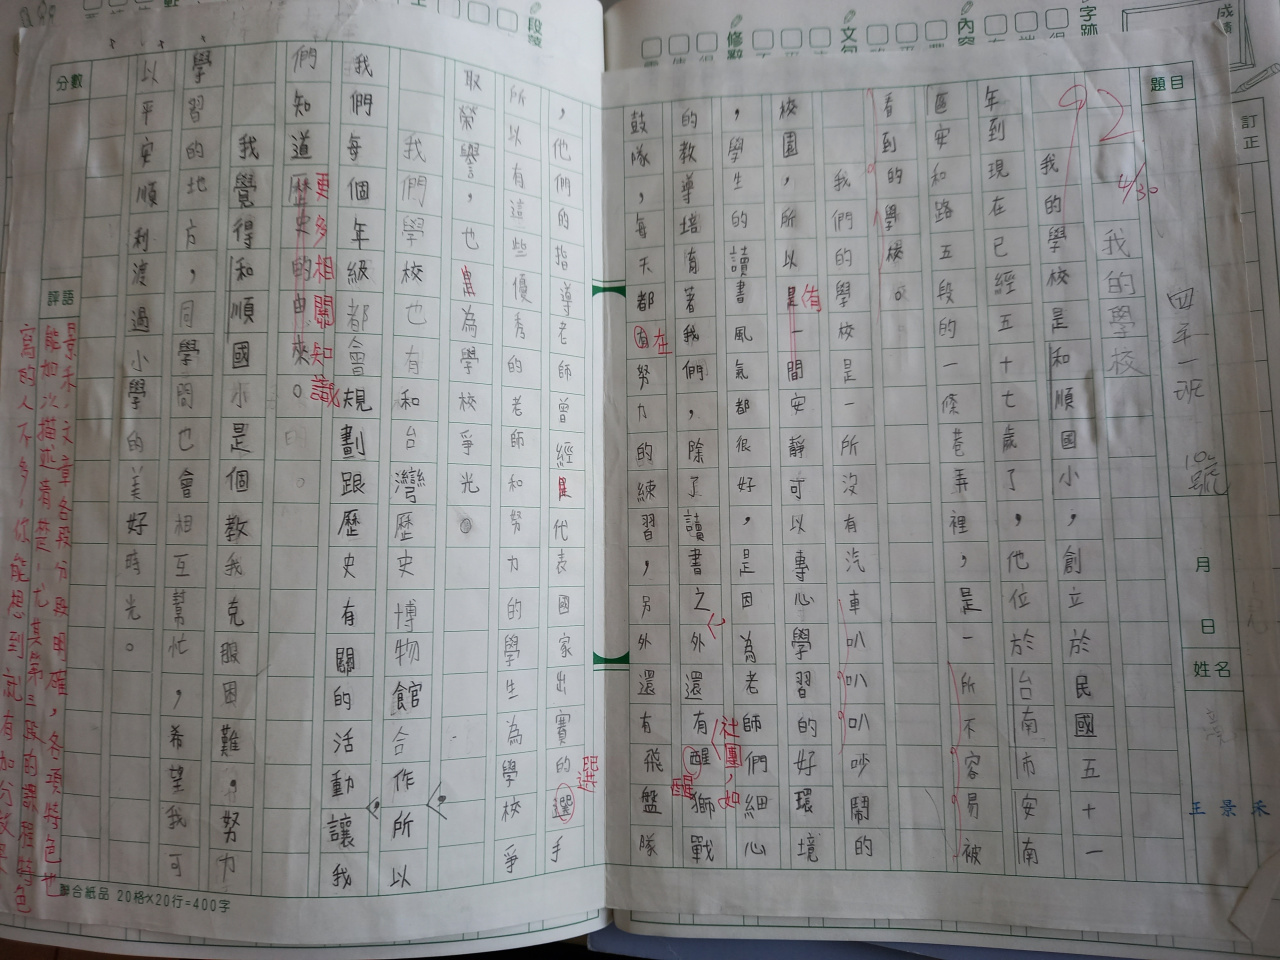 題目
四年一班
10號
月
日
姓名
王景禾
92
4/30
我的學校
我的學校是和順國小，創立於民國五十一
年到現在已經五十七歲了，他位於台南市安南
區安和路五段的一條巷弄裡，是一所不容易被
看到的學校。
我們的學校是一所沒有汽車叭叭叭吵鬧的
校園，所以是一間安靜可以專心學習的好環境
有
，學生的讀書風氣都很好，是因為老師們細心
的教導培育著我們，除了讀書之外還有醒獅戰
社團，如
醒
鼓隊，每天都有努力的練習，另外還有飛盤隊
在
，他們的指導老師曾經是代表國家出賽的選手
選
所以有這些優秀的老師和努力的學生為學校爭
取榮譽，也為學校爭光。
我們學校也有和台灣歷史博物館合作所以
我們每個年級都會規劃跟歷史有關的活動讓我
們知道歷史的由來。
更多相關知識
我覺得和順國小是個教我克服困難，努力
學習的地方，同學間也會相互幫忙，希望我可
以平安順利渡過小學的美好時光。
分數
評語
景禾，文章各段分段明確，各項特色也
能加以描述清楚！尤其第三段的課程特色
寫的人不多，你能想到就有加分效果
聯合紙品 20格×20行=400字
訂正
成績
字跡
內容
文句
修辭
段落